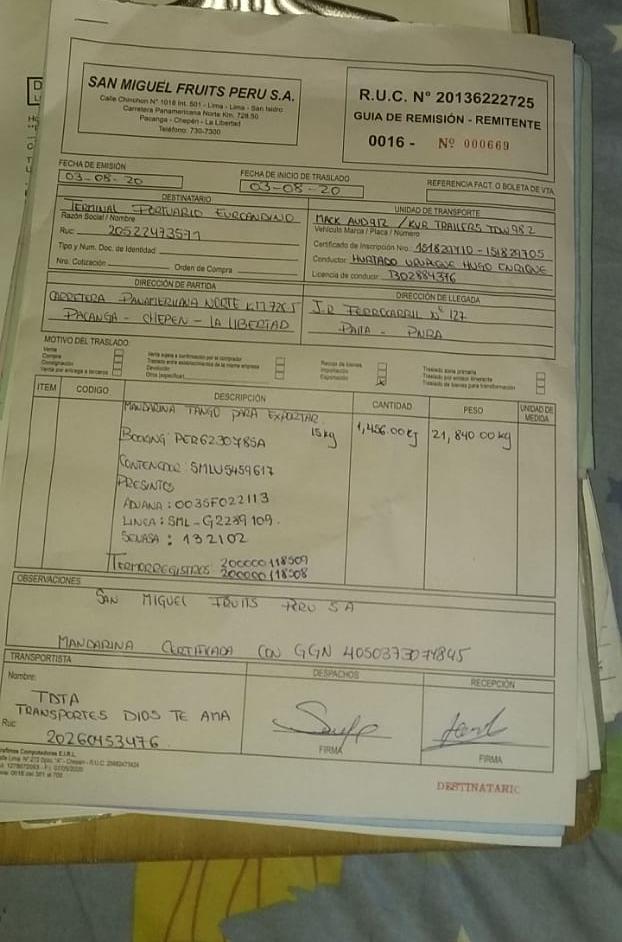 SAN MIGUEL FRUITS PERU S.A.
Calle Chinchon N° 1018 Int. 501 - Lima - Lima - San Isidro
Carretera Panamericana Norte Km. 728.50
Pacanga - Chepén - La Libertad
Teléfono: 730-7300
R.U.C. N° 20136222725
GUIA DE REMISIÓN - REMITENTE
0016 - Nº 000669
FECHA DE EMISIÓN
03-08-20
FECHA DE INICIO DE TRASLADO
03-08-20
REFERENCIA FACT. O BOLETA DE VTA.
DESTINATARIO
TERMINAL PORTUARIO EUROANDINO
Razón Social / Nombre
Ruc: 20522473571
Tipo y Num. Doc. de Identidad:
Nro. Cotización: Orden de Compra
UNIDAD DE TRANSPORTE
MACK AUD972 / KUR TRAILERS TDW982
Vehículo Marca / Placa / Número
Certificado de Inscripción Nro.: 151821710 - 151821705
Conductor: HURTADO HUGO ENRIQUE
Licencia de conducir: B02884376
DIRECCIÓN DE PARTIDA
CARRETERA PANAMERICANA NORTE KM 728.5
PACANGA - CHEPEN - LA LIBERTAD
DIRECCIÓN DE LLEGADA
J.R FERROCARRIL Nº 127
PAITA - PIURA
MOTIVO DEL TRASLADO:
Venta
Compra
Consignación
Venta por entrega a terceros
Venta sujeta a confirmación por el comprador
Traslado entre establecimientos de la misma empresa
Devolución
Otros (especificar)
Recojo de bienes
Importación
Exportación X
Traslado zona primaria
Traslado por emisor itinerante
Traslado de bienes para transformación
ITEM CODIGO DESCRIPCIÓN CANTIDAD PESO UNIDAD DE MEDIDA
MANDARINA TANGO PARA EXPORTAR
15 kg 1,456.00 kg 21,840.00 kg
BOOKING PER6230785A
CONTENEDOR: SMLU5459617
PRESINTOS
ADUANA: 0035F022113
LINEA: SML-G2239109.
SENASA: 132102
TERMORREGISTROS: 200000118509
200000118508
OBSERVACIONES
SAN MIGUEL FRUITS PERU S A
MANDARINA CERTIFICADA CON GGN 4050373074845
TRANSPORTISTA
Nombre:
TDTA
TRANSPORTES DIOS TE AMA
Ruc: 20260453476
DESPACHOS
FIRMA
RECEPCIÓN
FIRMA
DESTINATARIO